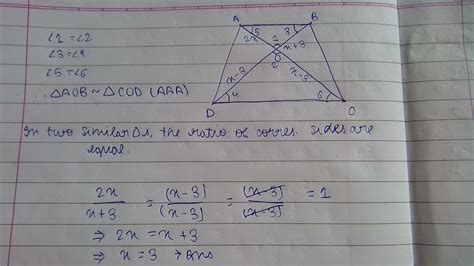 A B
5 3
2x 1 x+3
O
2
x-3 x-3
D 4 6 C
∠1 = ∠2
∠3 = ∠4
∠5 = ∠6
∴ △AOB ~ △COD (AAA)
In two similar △s, the ratio of corres. sides are
equal.
2x/(x+3) = (x-3)/(x-3) = (x-3)/(x-3) = 1
⇒ 2x = x+3
⇒ x = 3 → ans